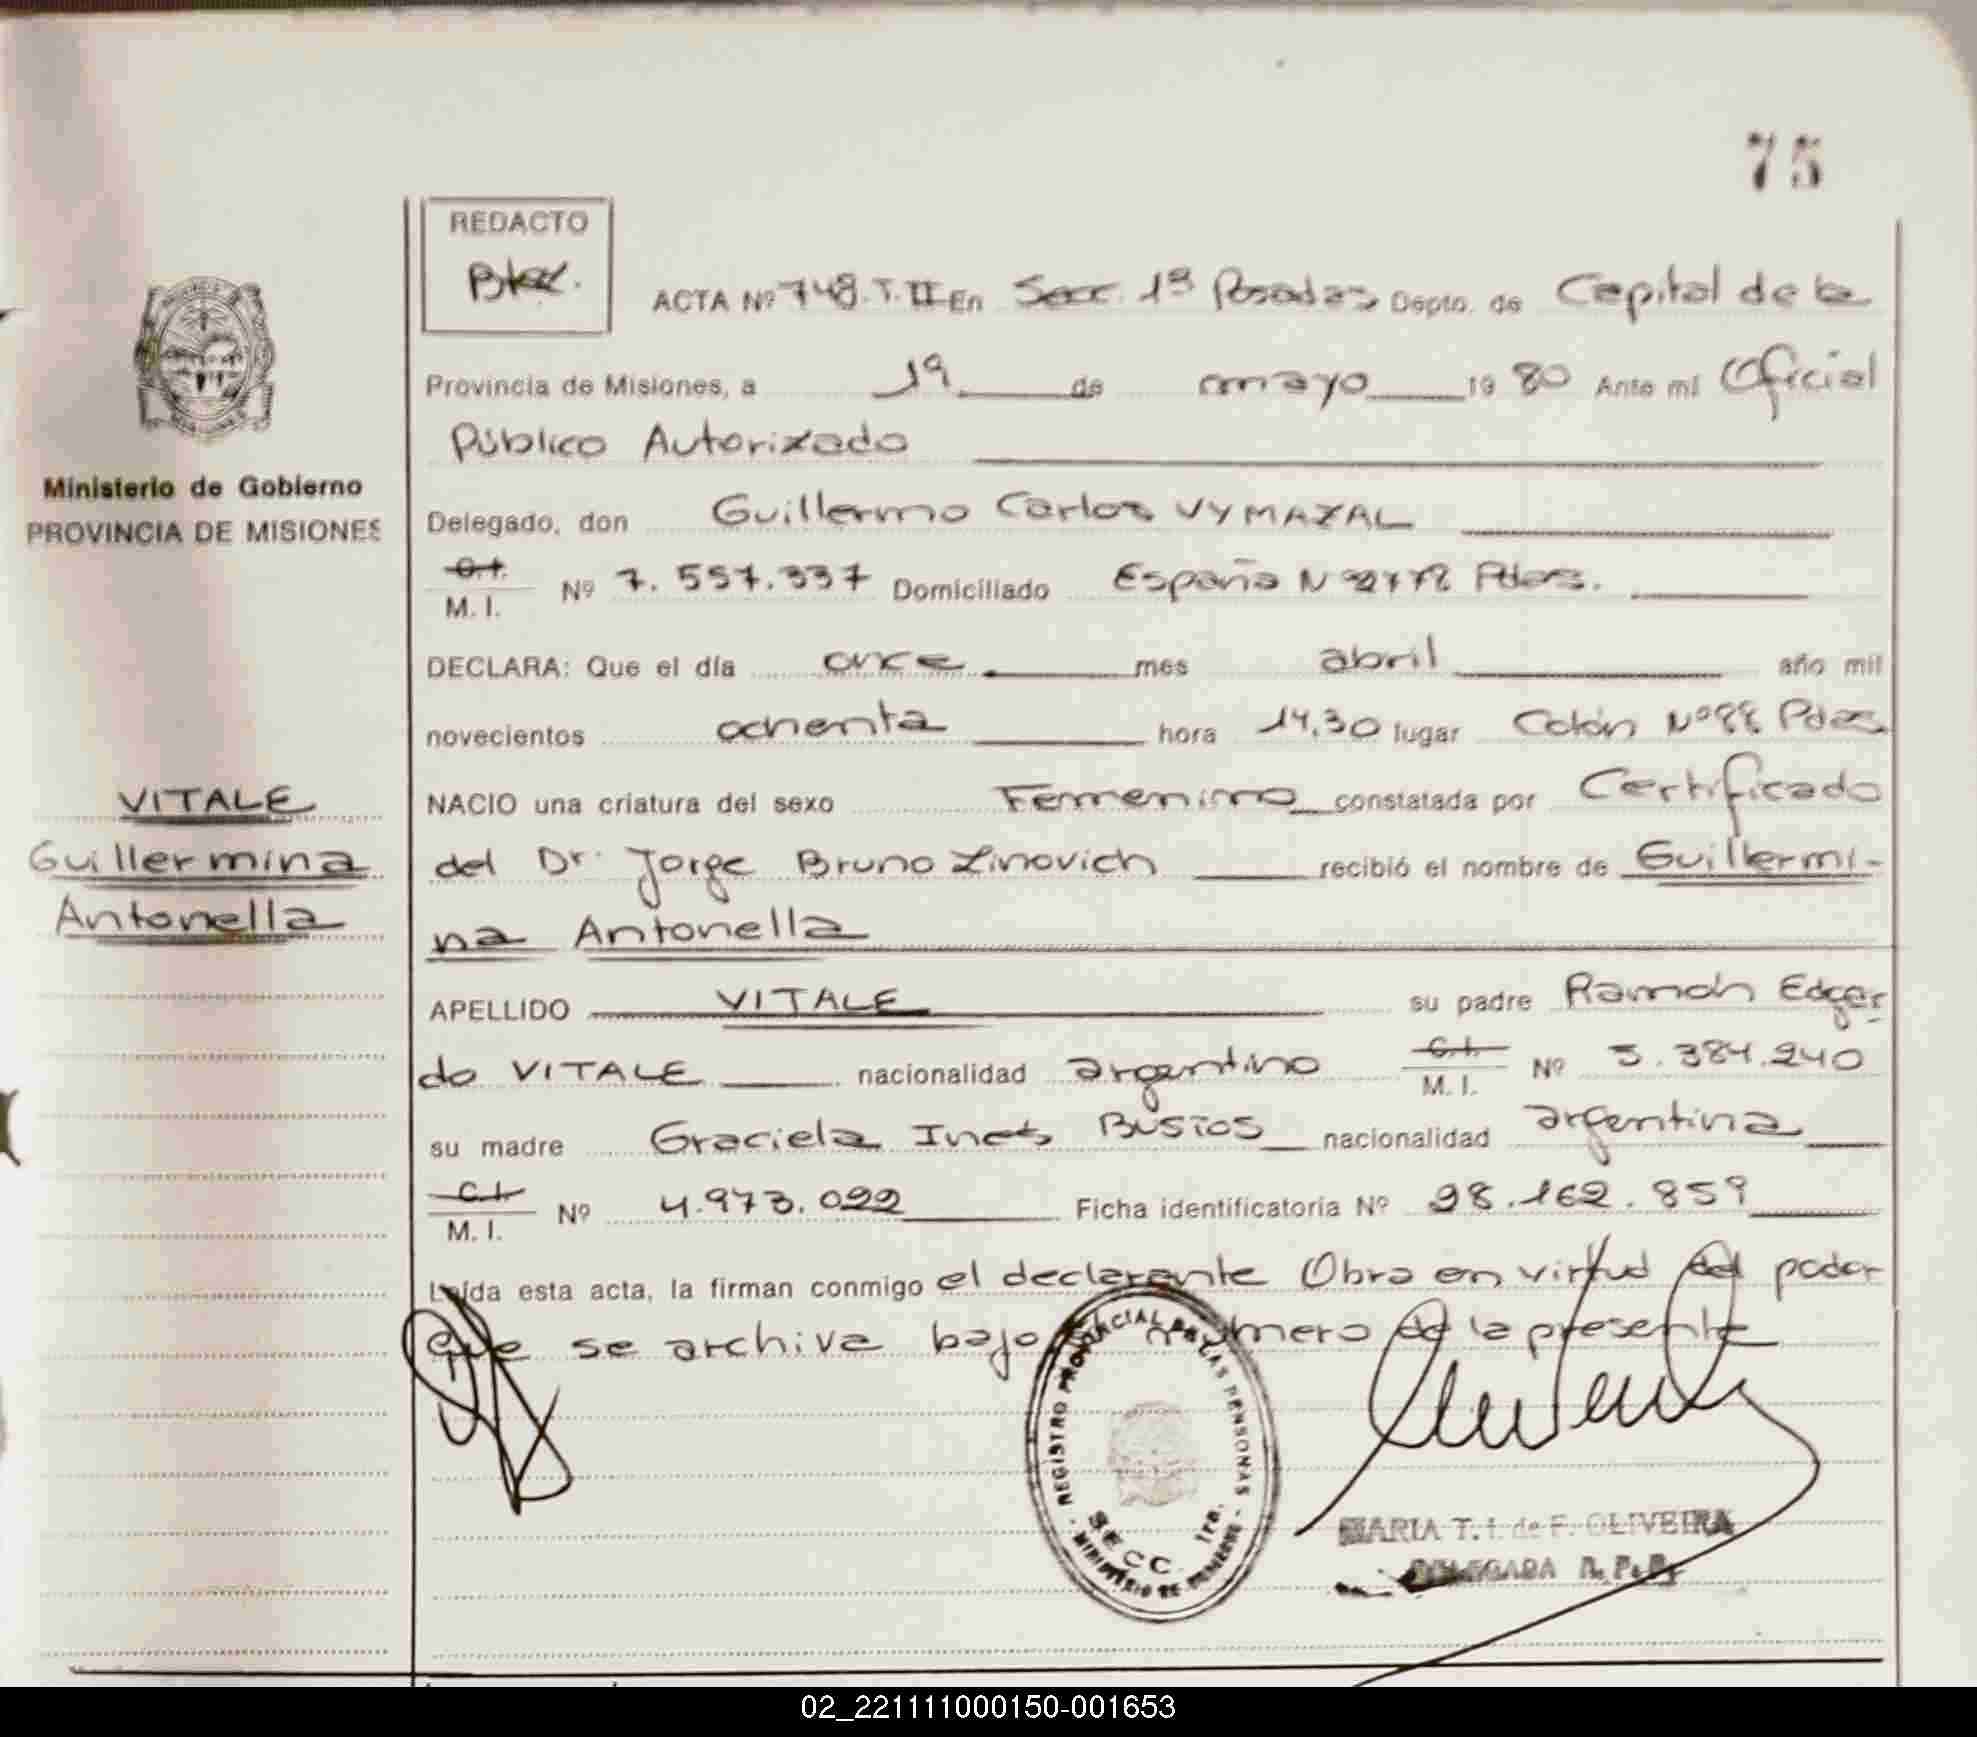 75
REDACTO
ACTA Nº 748.T.II En Secc. 1ª Posadas Depto. de Capital de la
Provincia de Misiones, a 19 de mayo 19 80 Ante mí Oficial
Público Autorizado
Ministerio de Gobierno
PROVINCIA DE MISIONES
Delegado, don Guillermo Carlos VYMAZAL
C.I. M. I. Nº 7.557.337 Domiciliado España Nº Pdas.
DECLARA: Que el día once mes abril año mil
novecientos ochenta hora 14,30 lugar Colón Nº 88 Pdas.
VITALE
Guillermina
Antonella
NACIO una criatura del sexo Femenino constatada por Certificado
del Dr. Jorge Bruno Zinovich recibió el nombre de Guillermi-
na Antonella
APELLIDO VITALE su padre Ramón Edgar
do VITALE nacionalidad argentino C.I. M. I. Nº 5.384.240
su madre Graciela Inés BUSTOS nacionalidad argentina
C.I. M. I. Nº 4.973.022 Ficha identificatoria Nº 28.162.859
Leída esta acta, la firman conmigo el declarante Obra en virtud del poder
que se archiva bajo número de la presente
REGISTRO PROVINCIAL DE LAS PERSONAS
SECC. 1ra.
MINISTERIO DE GOBIERNO
MARIA T. I. de F. OLIVEIRA
DELEGADA R. P. P.
02_221111000150-001653